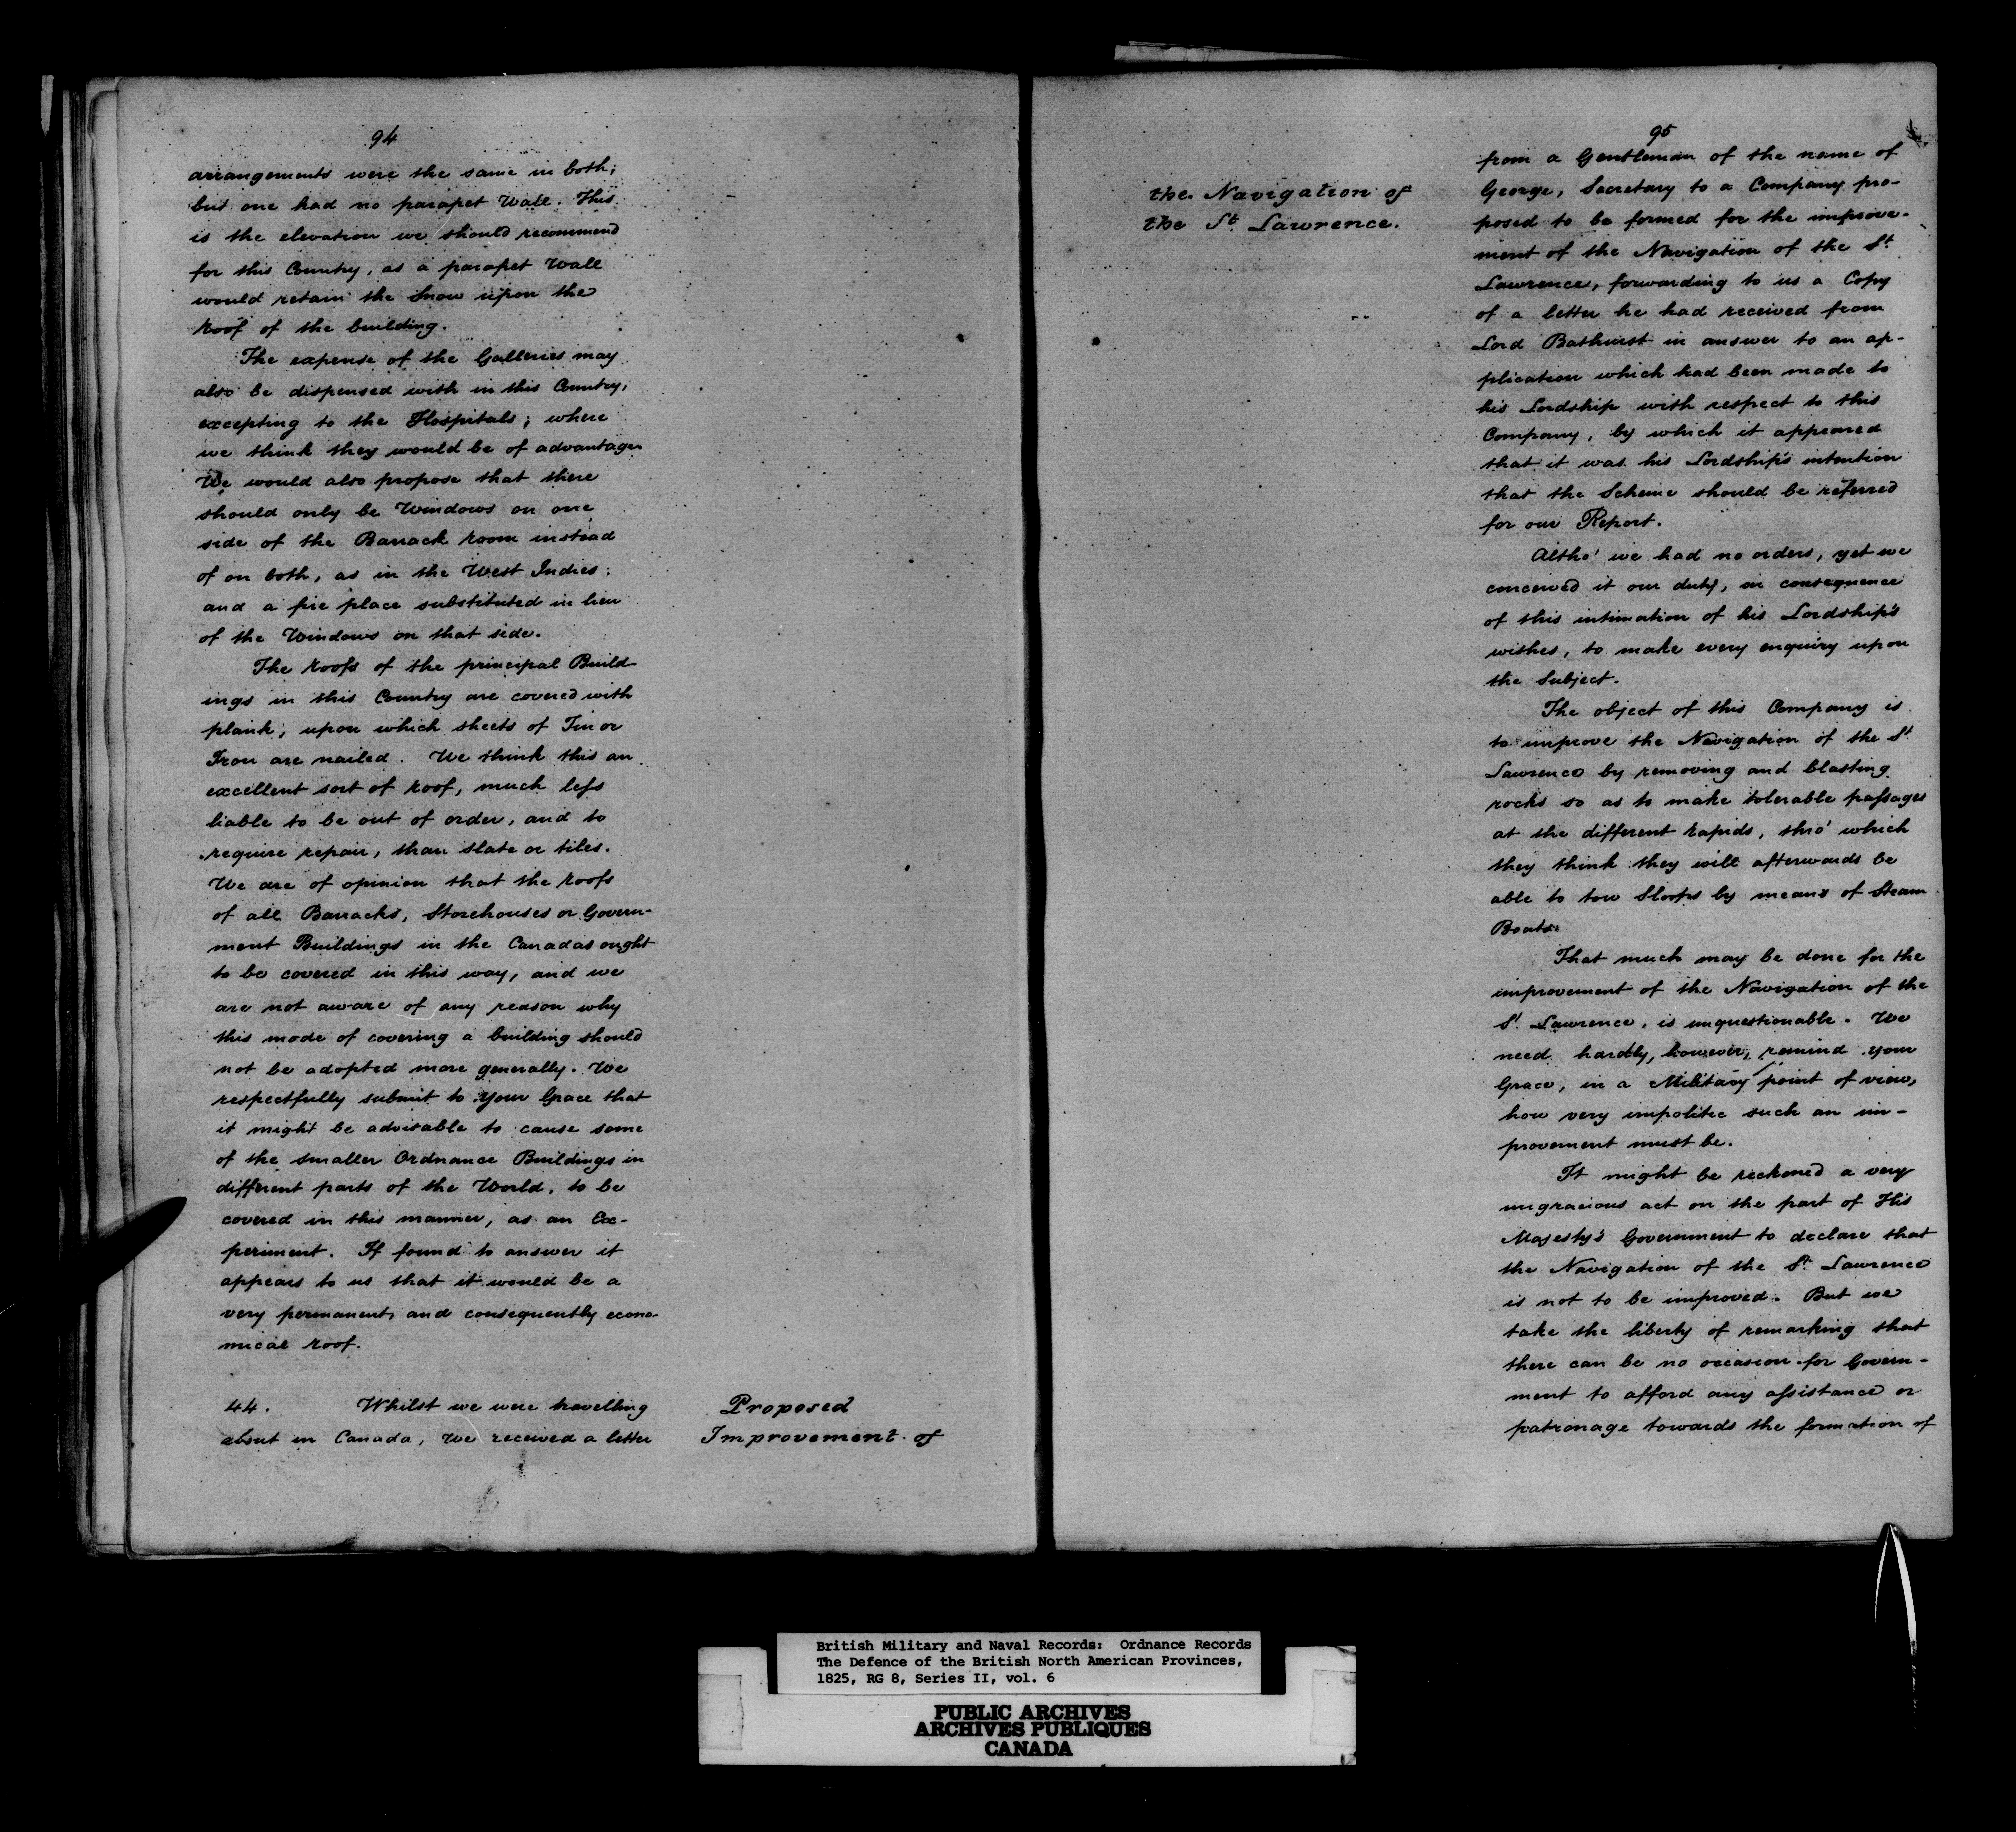 94
arrangements were the same in both;
but one had no parapet Wall. This
is the elevation we should recommend
for this Country, as a parapet Wall
would retain the Snow upon the
Roof of the building.
The expense of the Galleries may
also be dispensed with in this Country,
excepting to the Hospitals; where
we think they would be of advantage.
We would also propose that there
should only be Windows on one
side of the Barrack Room instead
of on both, as in the West Indies;
and a fire place substituted in lieu
of the Windows on that side.
The Roofs of the principal Build-
ings in this Country are covered with
plank; upon which sheets of Tin or
Iron are nailed. We think this an
excellent sort of Roof, much less
liable to be out of order, and to
require repair, than slate or tiles.
We are of opinion that the Roofs
of all Barracks, Storehouses or Govern-
ment Buildings in the Canadas ought
to be covered in this way, and we
are not aware of any reason why
this mode of covering a building should
not be adopted more generally. We
respectfully submit to Your Grace that
it might be advisable to cause some
of the smaller Ordnance Buildings in
different parts of the World, to be
covered in this manner, as an Ex-
periment. If found to answer it
appears to us that it would be a
very permanent, and consequently econo-
mical Roof.
44. Whilst we were travelling
about in Canada, We received a letter
Proposed
Improvement of
the Navigation of
the St. Lawrence.
95
from a Gentleman of the name of
George, Secretary to a Company pro-
posed to be formed for the improve-
ment of the Navigation of the St.
Lawrence, forwarding to us a Copy
of a letter he had received from
Lord Bathurst in answer to an ap-
plication which had been made to
his Lordship with respect to this
Company, by which it appeared
that it was his Lordship's intention
that the Scheme should be referred
for our Report.
Altho' we had no orders, yet we
conceived it our duty, in consequence
of this intimation of his Lordship's
wishes, to make every enquiry upon
the Subject.
The object of this Company is
to improve the Navigation of the St.
Lawrence by removing and blasting
rocks so as to make tolerable passages
at the different Rapids, thro' which
they think they will afterwards be
able to tow Sloops by means of Steam
Boats.
That much may be done for the
improvement of the Navigation of the
St. Lawrence, is unquestionable. We
need hardly, however, remind your
Grace, in a Military point of view,
how very impolitic such an im-
provement must be.
It might be reckoned a very
ungracious act on the part of His
Majesty's Government to declare that
the Navigation of the St. Lawrence
is not to be improved. But we
take the liberty of remarking that
there can be no occasion for Govern-
ment to afford any assistance or
patronage towards the formation of
British Military and Naval Records: Ordnance Records
The Defence of the British North American Provinces,
1825, RG 8, Series II, vol. 6
PUBLIC ARCHIVES
ARCHIVES PUBLIQUES
CANADA